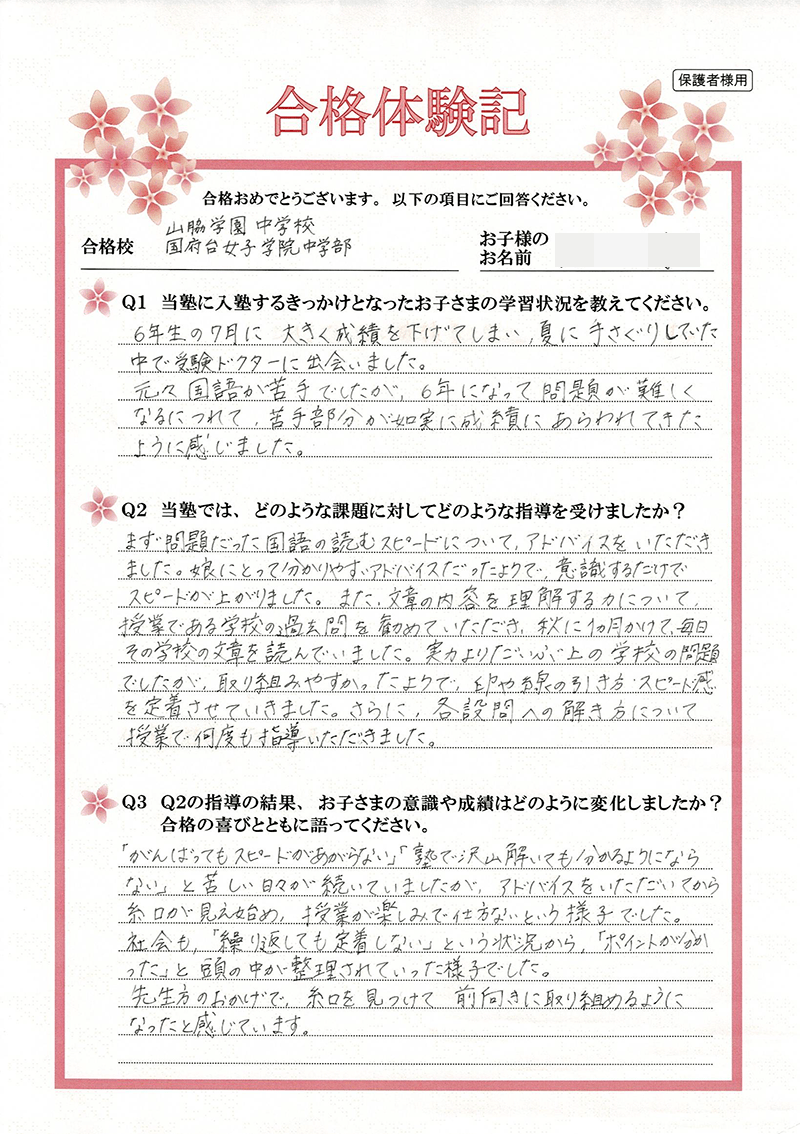 保護者様用
合格体験記
合格おめでとうございます。以下の項目にご回答ください。
合格校
山脇学園 中学校
国府台女子学院中学部
お子様の
お名前
Q1 当塾に入塾するきっかけとなったお子さまの学習状況を教えてください。
6年生の7月に 大きく成績を下げてしまい、夏に手さぐりしていた
中で受験ドクターに出会いました。
元々国語が苦手でしたが、6年になって問題が難しく
なるにつれて、苦手部分が如実に成績にあらわれてきた
ように感じました。
Q2 当塾では、どのような課題に対してどのような指導を受けましたか？
まず問題だった国語の読むスピードについて、アドバイスをいただき
ました。娘にとって分かりやすいアドバイスだったようで、意識するだけで
スピードが上がりました。また、文章の内容を理解する力について、
授業である学校の過去問を勧めていただき、秋に1カ月かけて、毎日
その学校の文章を読んでいました。実力よりだいぶ上の学校の問題
でしたが、取り組みやすかったようで、印や線の引き方・スピード感
を定着させていきました。さらに、各設問への解き方について
授業で何度も指導いただきました。
Q3 Q2の指導の結果、お子さまの意識や成績はどのように変化しましたか？
合格の喜びとともに語ってください。
「がんばってもスピードがあがらない」「塾で沢山解いても分かるようになら
ない」と苦しい日々が続いていましたが、アドバイスをいただいてから
糸口が見え始め、授業が楽しみで仕方ないという様子でした。
社会も、「繰り返しても定着しない」という状況から、「ポイントが分か
った」と頭の中が整理されていった様子でした。
先生方のおかげで、糸口を見つけて 前向きに取り組めるように
なったと感じています。